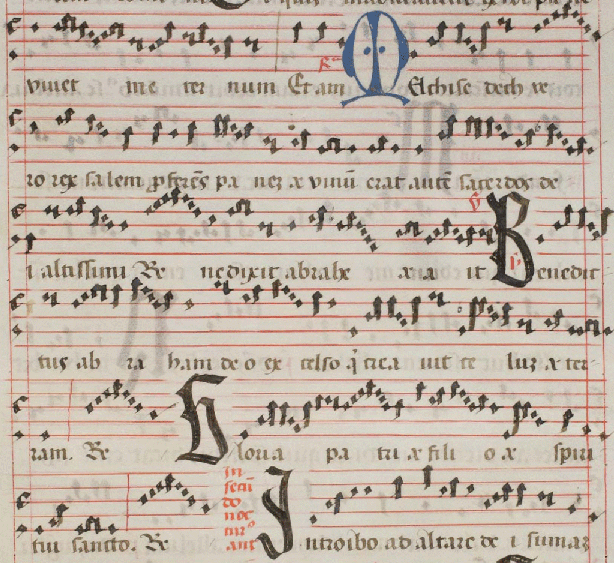 vivet in e ter num Et am Melchisedech ve
ro rex salem proferens pa nez et vinum erat autem sacerdos de
i altissimi Be ne dixit abrahe ℣ Benedic
tus ab ra ham de o ex celso qi crea uit ce lum et ter
ram. Be Gloria pa tri et fili o et spiri
tui sancto. Be In secundo nocturno ant Introibo ad altare de i sumaz